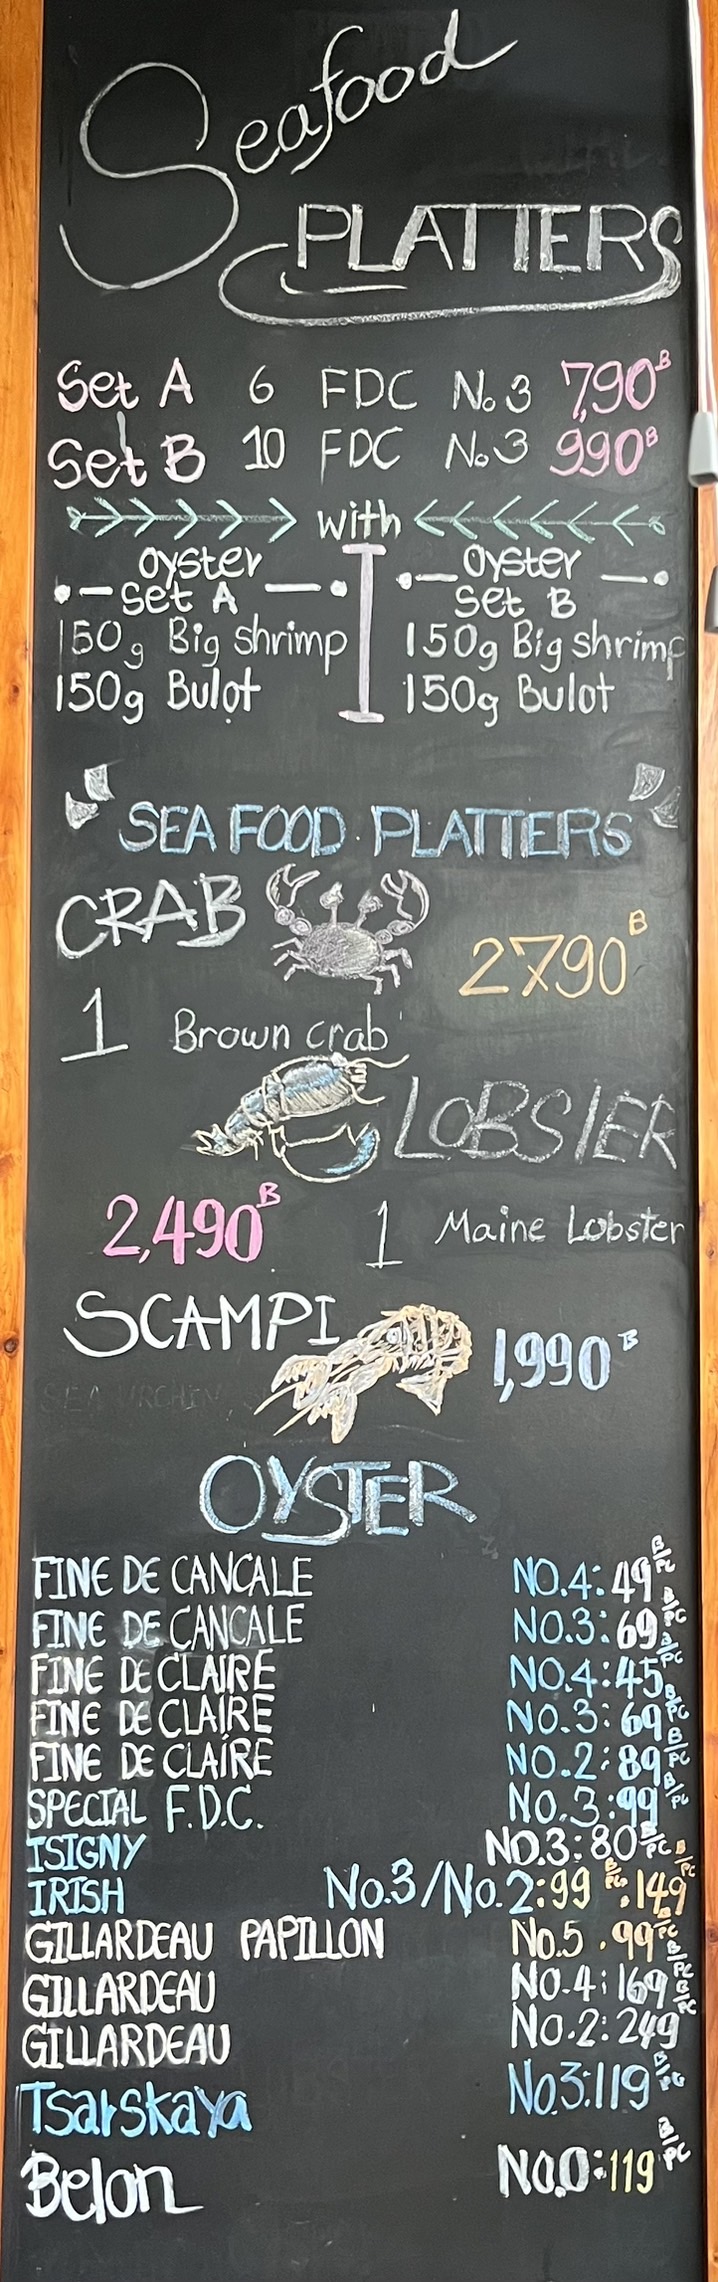 Seafood
PLATTERS
Set A 6 FDC No 3 790B
Set B 10 FDC No 3 990B
with
oyster
set A
150g Big shrimp
150g Bulot
Oyster
set B
150g Big shrimp
150g Bulot
SEA FOOD PLATTERS
CRAB
2790B
1 Brown crab
LOBSTER
2,490B
1 Maine Lobster
SCAMPI
1,990B
SEA URCHIN
OYSTER
FINE DE CANCALE NO.4: 49 B/PC
FINE DE CANCALE NO.3: 69 B/PC
FINE DE CLAIRE NO.4: 45 B/PC
FINE DE CLAIRE NO.3: 69 B/PC
FINE DE CLAIRE NO.2: 89 B/PC
SPECIAL F.D.C. NO.3: 99 B/PC
ISIGNY NO.3: 80 B/PC
IRISH No.3/No.2: 99 B/PC . 149 B/PC
GILLARDEAU PAPILLON No.5 . 99 B/PC
GILLARDEAU NO.4: 169 B/PC
GILLARDEAU NO.2: 249 B/PC
Tsarskaya NO.3: 119 B/PC
Belon NO.0: 119 B/PC